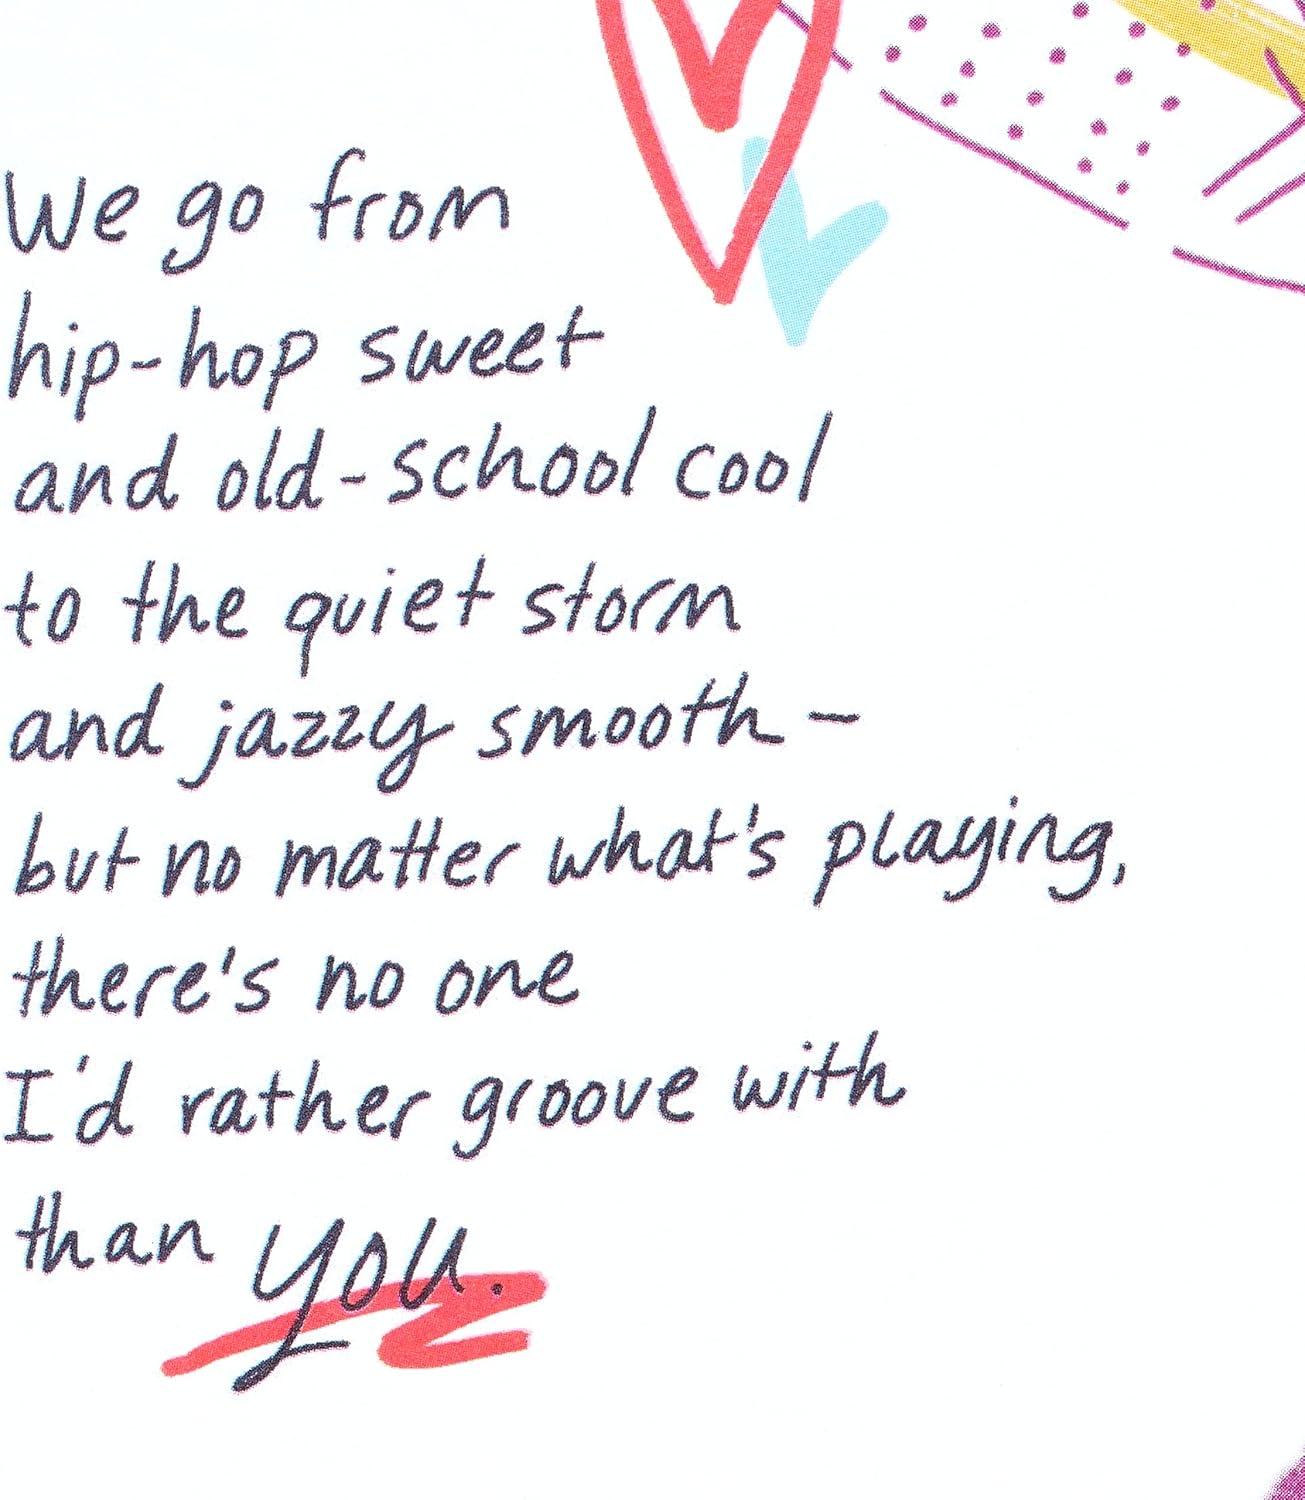 We go from
hip-hop sweet
and old-school cool
to the quiet storm
and jazzy smooth –
but no matter what's playing,
there's no one
I'd rather groove with
than you.